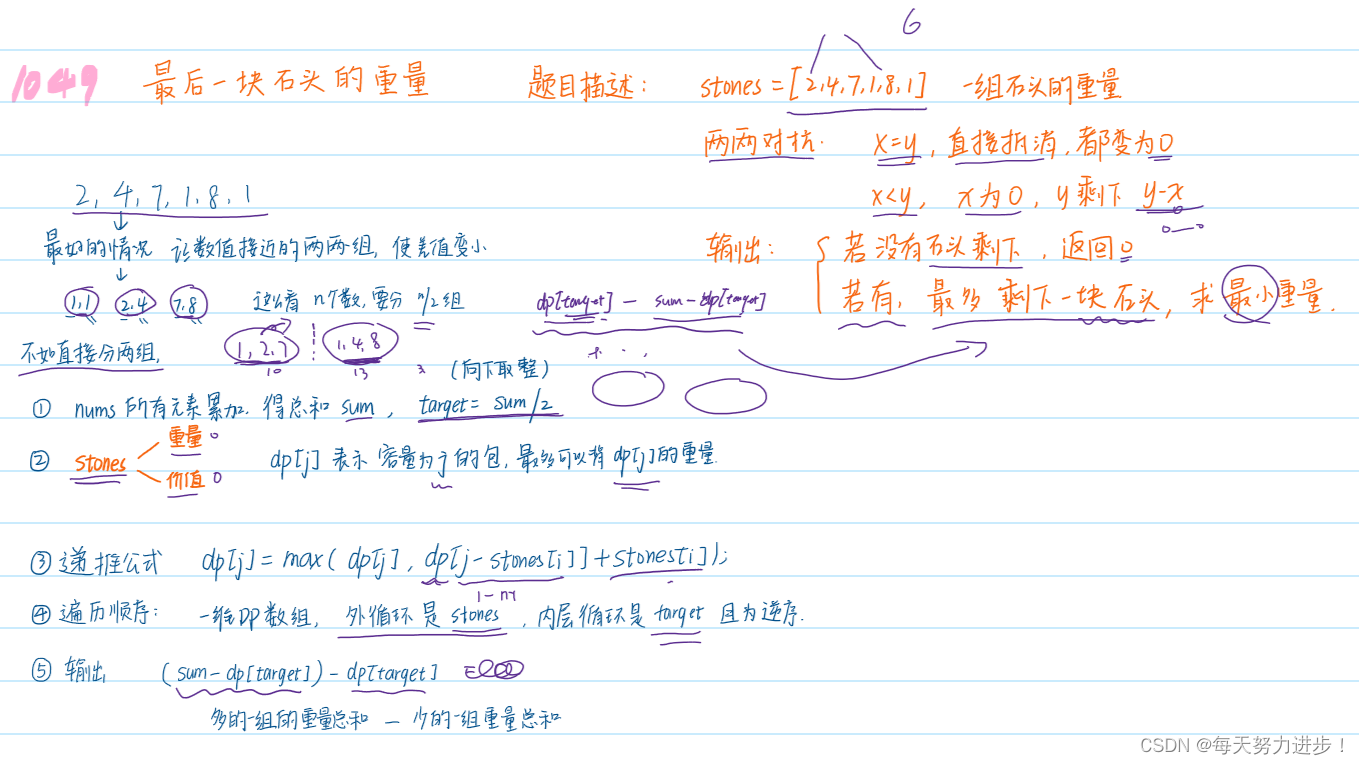 6
1049 最后一块石头的重量 题目描述: stones=[2,4,7,1,8,1] 一组石头的重量
两两对抗. x=y, 直接抵消, 都变为0
x<y, x为0, y剩下 y-x
输出: { 若没有石头剩下, 返回0
若有, 最多剩下一块石头, 求最小重量.
2, 4, 7, 1, 8, 1
最好的情况 让数值接近的两两一组, 使差值变小
1,1 2,4 7,8 这么看 n个数, 要分 n/2组 dp[target] - sum-dp[target]
不如直接分两组, 1, 2, 7 1, 4, 8
10 13 (向下取整)
① nums 所有元素累加. 得总和 sum, target= sum/2
② stones 重量 价值 dp[j] 表示 容量为j的包, 最多可以背 dp[j]的重量.
③ 递推公式 dp[j]=max( dp[j], dp[j-stones[i]]+stones[i]);
④ 遍历顺序: 一维DP数组, 外循环是 stones, 内层循环是 target 且为逆序.
⑤ 输出 (sum-dp[target])-dp[target]
多的一组的重量总和 — 少的一组重量总和
CSDN @每天努力进步!